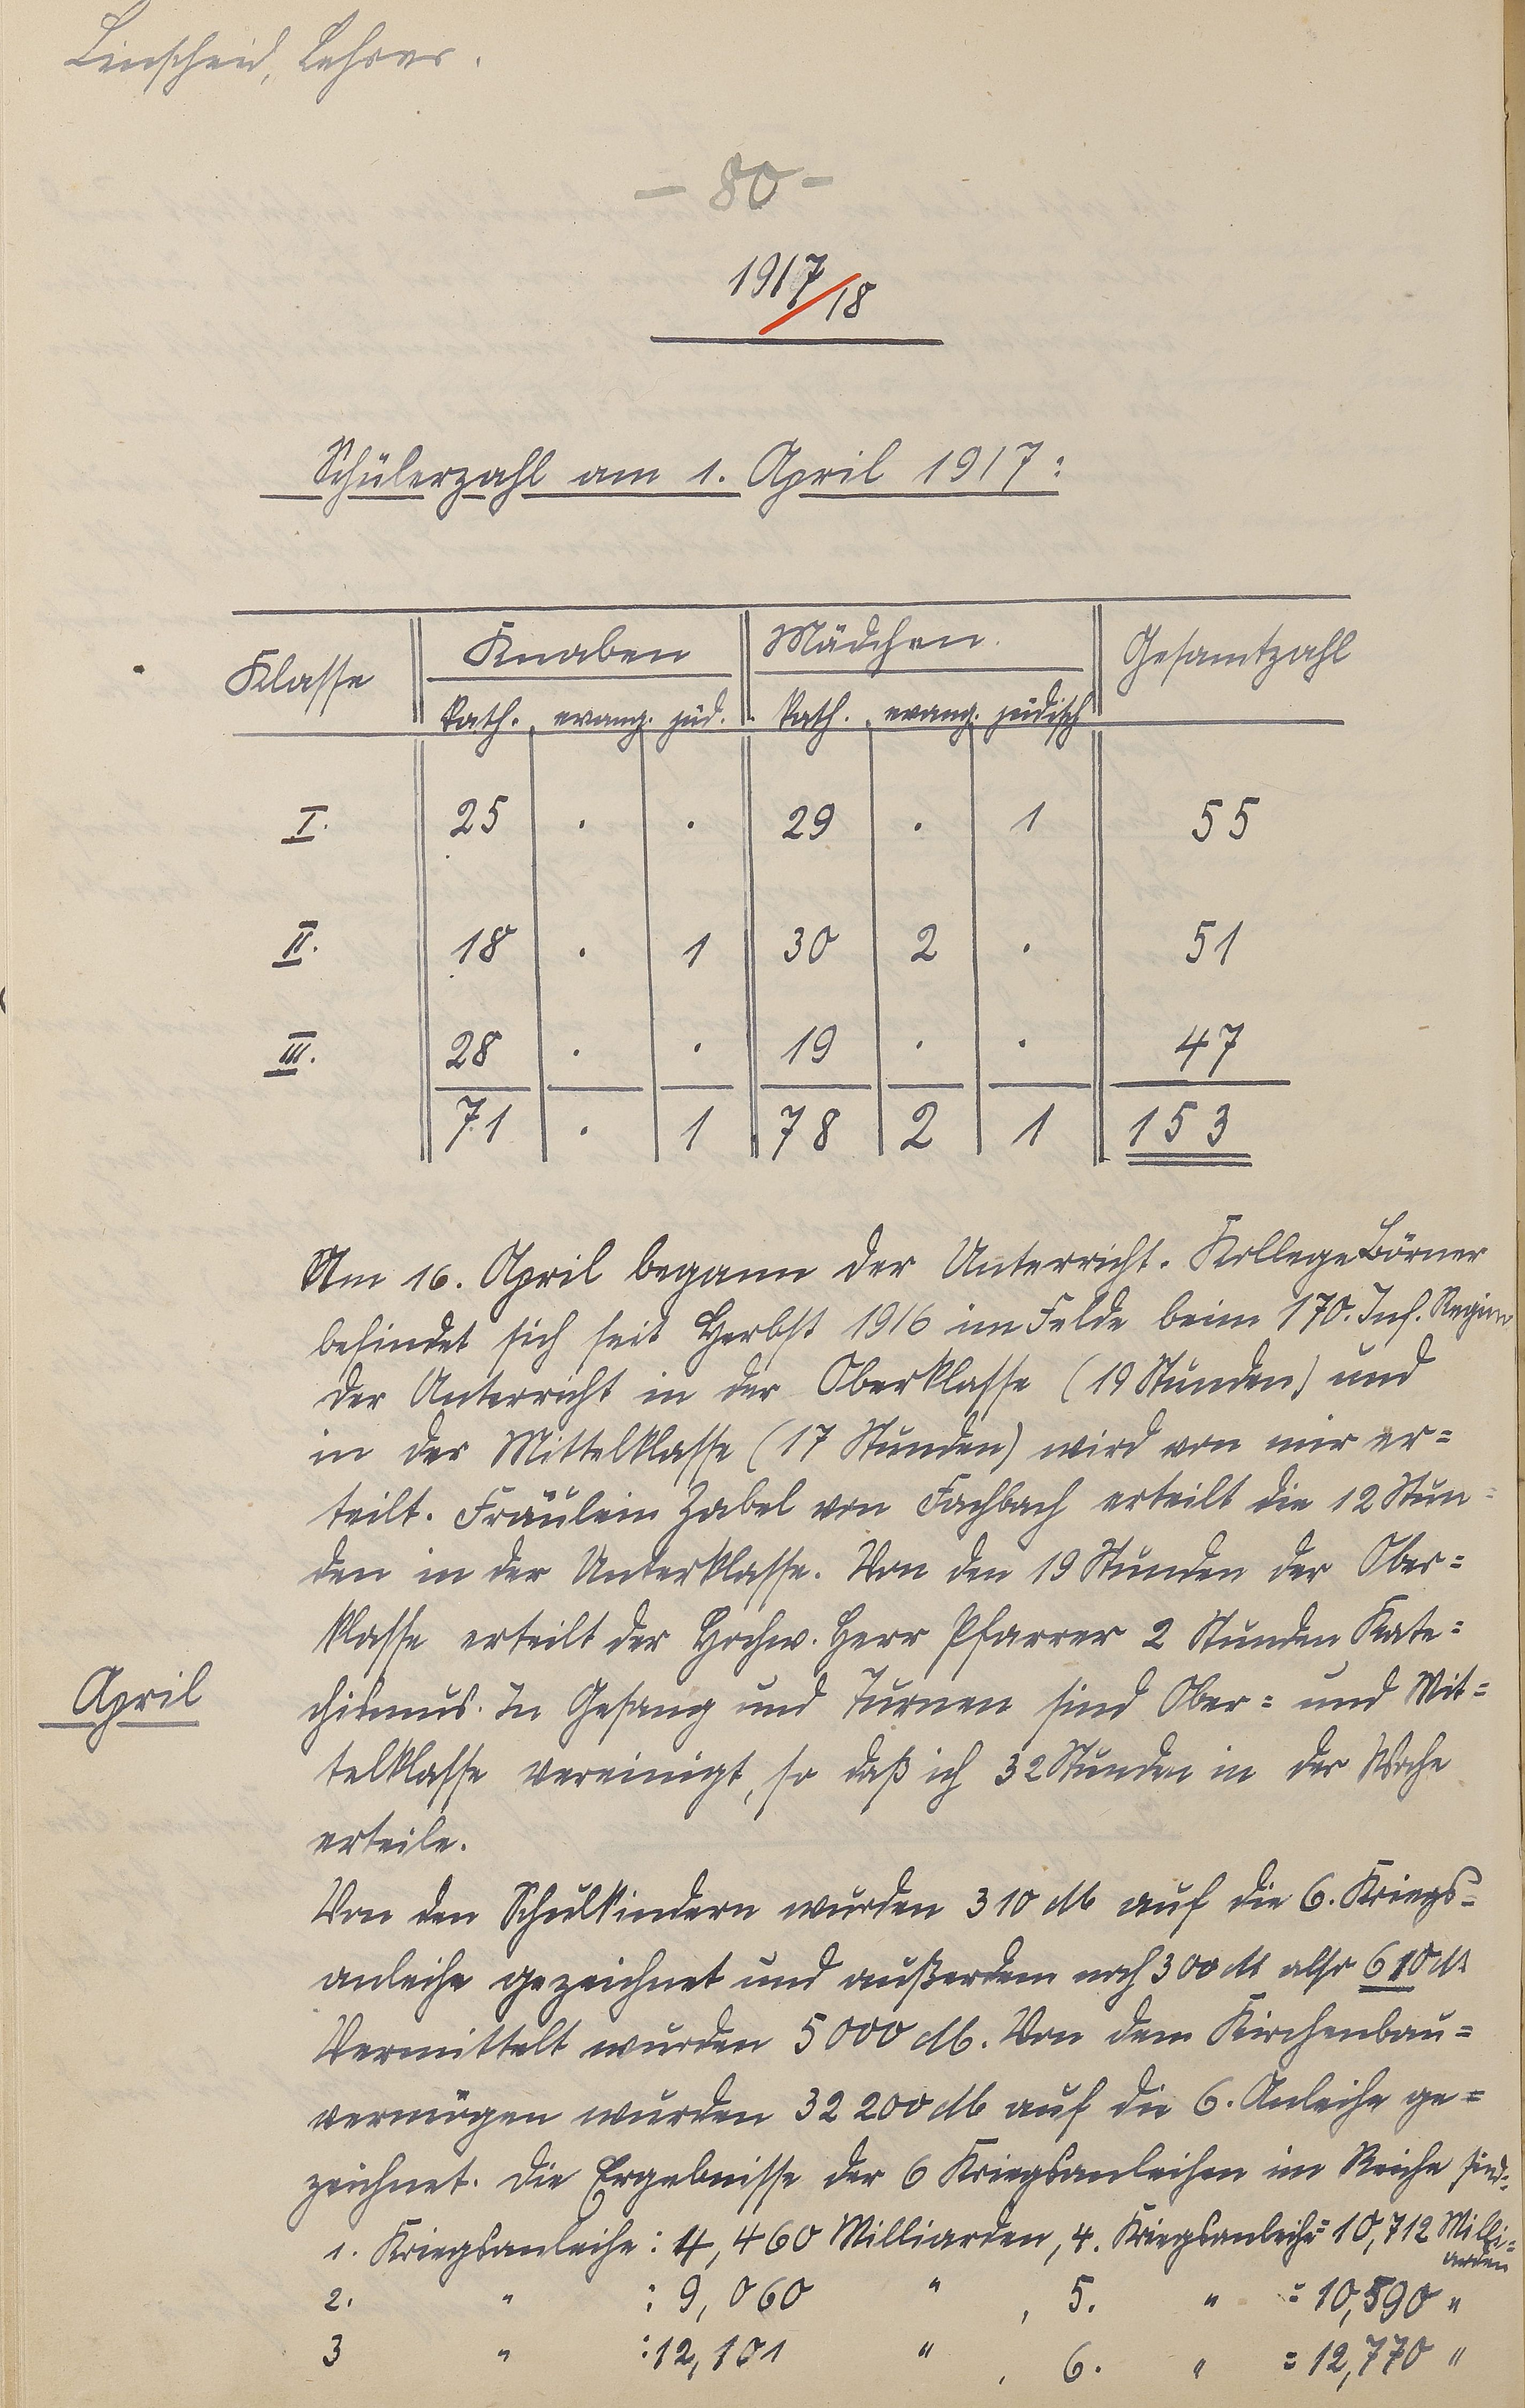 Linscheid, Lehrer.
- 80 -
1917/18
Schülerzahl am 1. April 1917:
Klasse Knaben Mädchen. Gesamtzahl
kath. evang. jüd. kath. evang. jüdisch
I. 25 . . 29 . 1 55
II. 18 . 1 30 2 . 51
III. 28 . . 19 . . 47
71 . 1 78 2 1 153
Am 16. April begann der Unterricht. Kollege Börner
befindet sich seit Herbst 1916 im Felde beim 170. Inf. Regim.
Der Unterricht in der Oberklasse (19 Stunden) und
in der Mittelklasse (17 Stunden) wird von mir er=
teilt. Fräulein Zabel von Fachbach erteilt die 12 Stun=
den in der Unterklasse. Von den 19 Stunden der Ober=
klasse erteilt der Hochw. Herr Pfarrer 2 Stunden Kate=
April
chismus. In Gesang und Turnen sind Ober= und Mit=
telklasse vereinigt, so daß ich 32 Stunden in der Woche
erteile.
Von den Schulkindern wurden 310 M auf die 6. Kriegs=
anleihe gezeichnet und außerdem noch 300 M also 610 M
Vermittelt wurden 5000 M. Von dem Kirchenbau=
vermögen wurden 32 200 M auf die 6. Anleihe ge=
zeichnet. Die Ergebnisse der 6 Kriegsanleihen im Reiche sind:
1. Kriegsanleihe : 4,460 Milliarden, 4. Kriegsanleihe = 10,712 Milli=
arden
2. " : 9,060 " , 5. " = 10,590 "
3 " : 12,101 " , 6. " = 12,770 "